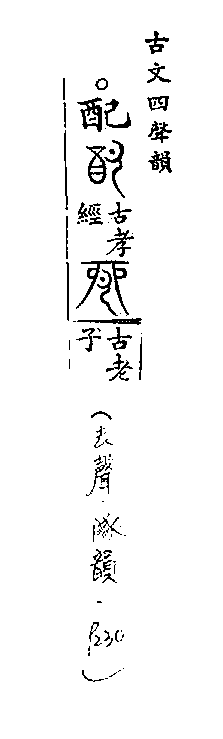 古文四聲韻
配
古孝經
古老子
（去聲．隊韻．P230）